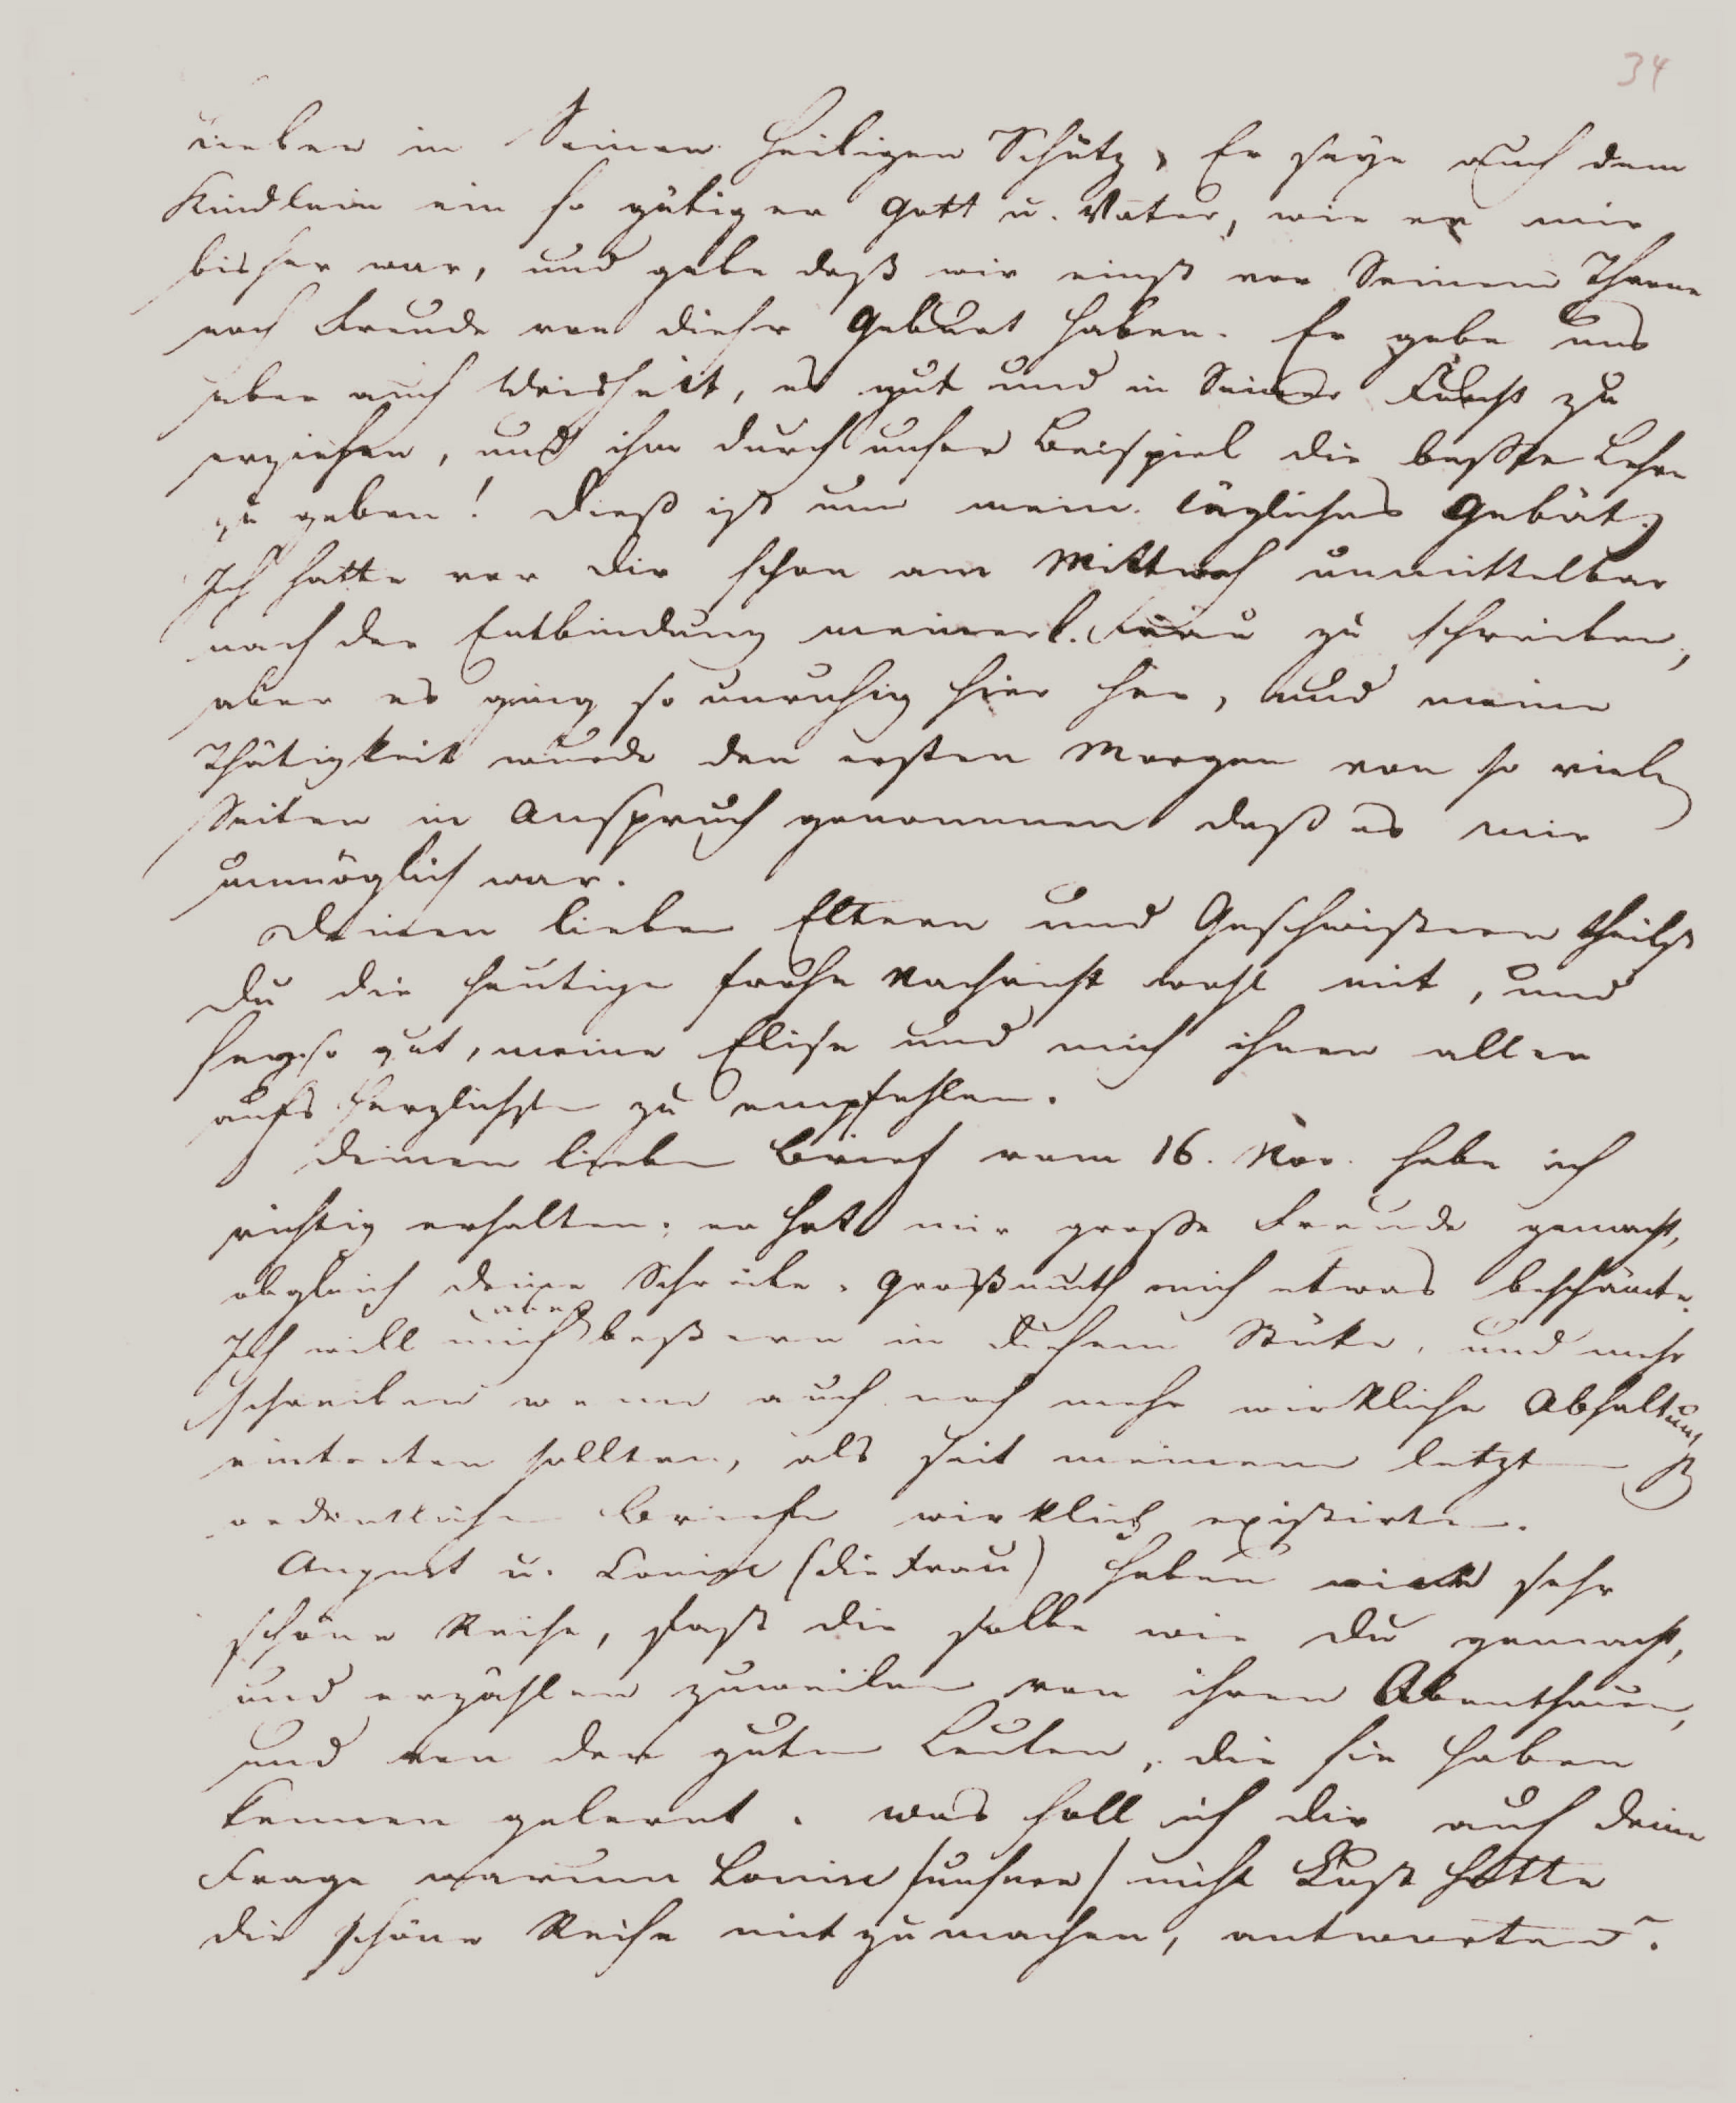 34
lieben in Seinen heiligen Schutz, Er seye auch dem
Kindlein ein so gütiger Gott u. Vater, wie er mir
bisher war, und gebe daß wir einst vor Seinem Throne
noch Freude von dieser Geburt haben. Er gebe uns
aber auch Weisheit, es gut und in Seiner Furcht zu
erziehen, und ihm durch unser Beispiel die beßte Lehre
zu geben! Dieß ist nun mein tägliches Gebät.
Ich hatte vor Dir schon am Mittwoch unmittelbar
nach der Entbindung meiner l. Frau zu schreiben,
aber es ging so unruhig hier her, und meine
Thätigkeit wurde den ersten Morgen von so vielen
Seiten in Anspruch genommen daß es mir
unmöglich war.
Deinen lieben Eltern und Geschwistern theilst
Du die heutige frohe Nachricht wohl mit, und
bist so gut, meine Elise und mich ihnen allen
aufs herzlichste zu empfehlen.
Deinen lieben Brief vom 16. Nov. habe ich
richtig erhalten; er hat mir große Freude gemacht,
obgleich Deine Schreibe-Großmuth mich etwas beschämte.
Ich will mich aber beßern in diesem Stüke, und mehr
schreiben wenn auch noch mehr wirkliche Abhaltung
eintreten sollten, als seit meinem letzten
ordentlichen Briefe wirklich existirten.
August u. Louise (die Frau) haben eine sehr
schöne Reise, fast die selbe wie Du gemacht,
und erzählen zuweilen von ihren Abentheuern,
und von den guten Leuten, die sie haben
kennen gelernt. Was soll ich Dir auf Deine
Frage warum Louise (unsere) nicht Lust hatte
die schöne Reise mitzumachen, antworten?